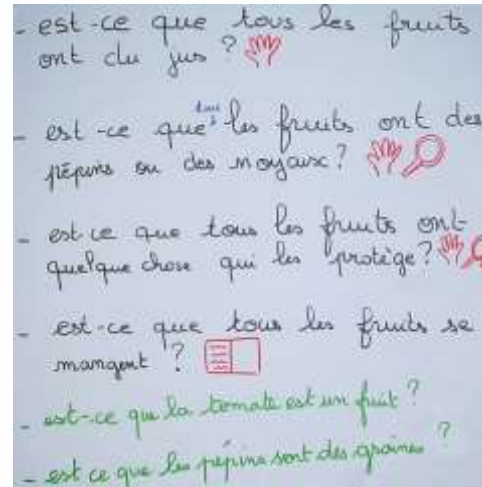 - est-ce que tous les fruits
ont du jus ?
tous
- est-ce que les fruits ont des
pépins ou des noyaux ?
- est-ce que tous les fruits ont
quelque chose qui les protège ?
- est-ce que tous les fruits se
mangent ?
- est-ce que la tomate est un fruit ?
- est ce que les pépins sont des graines ?